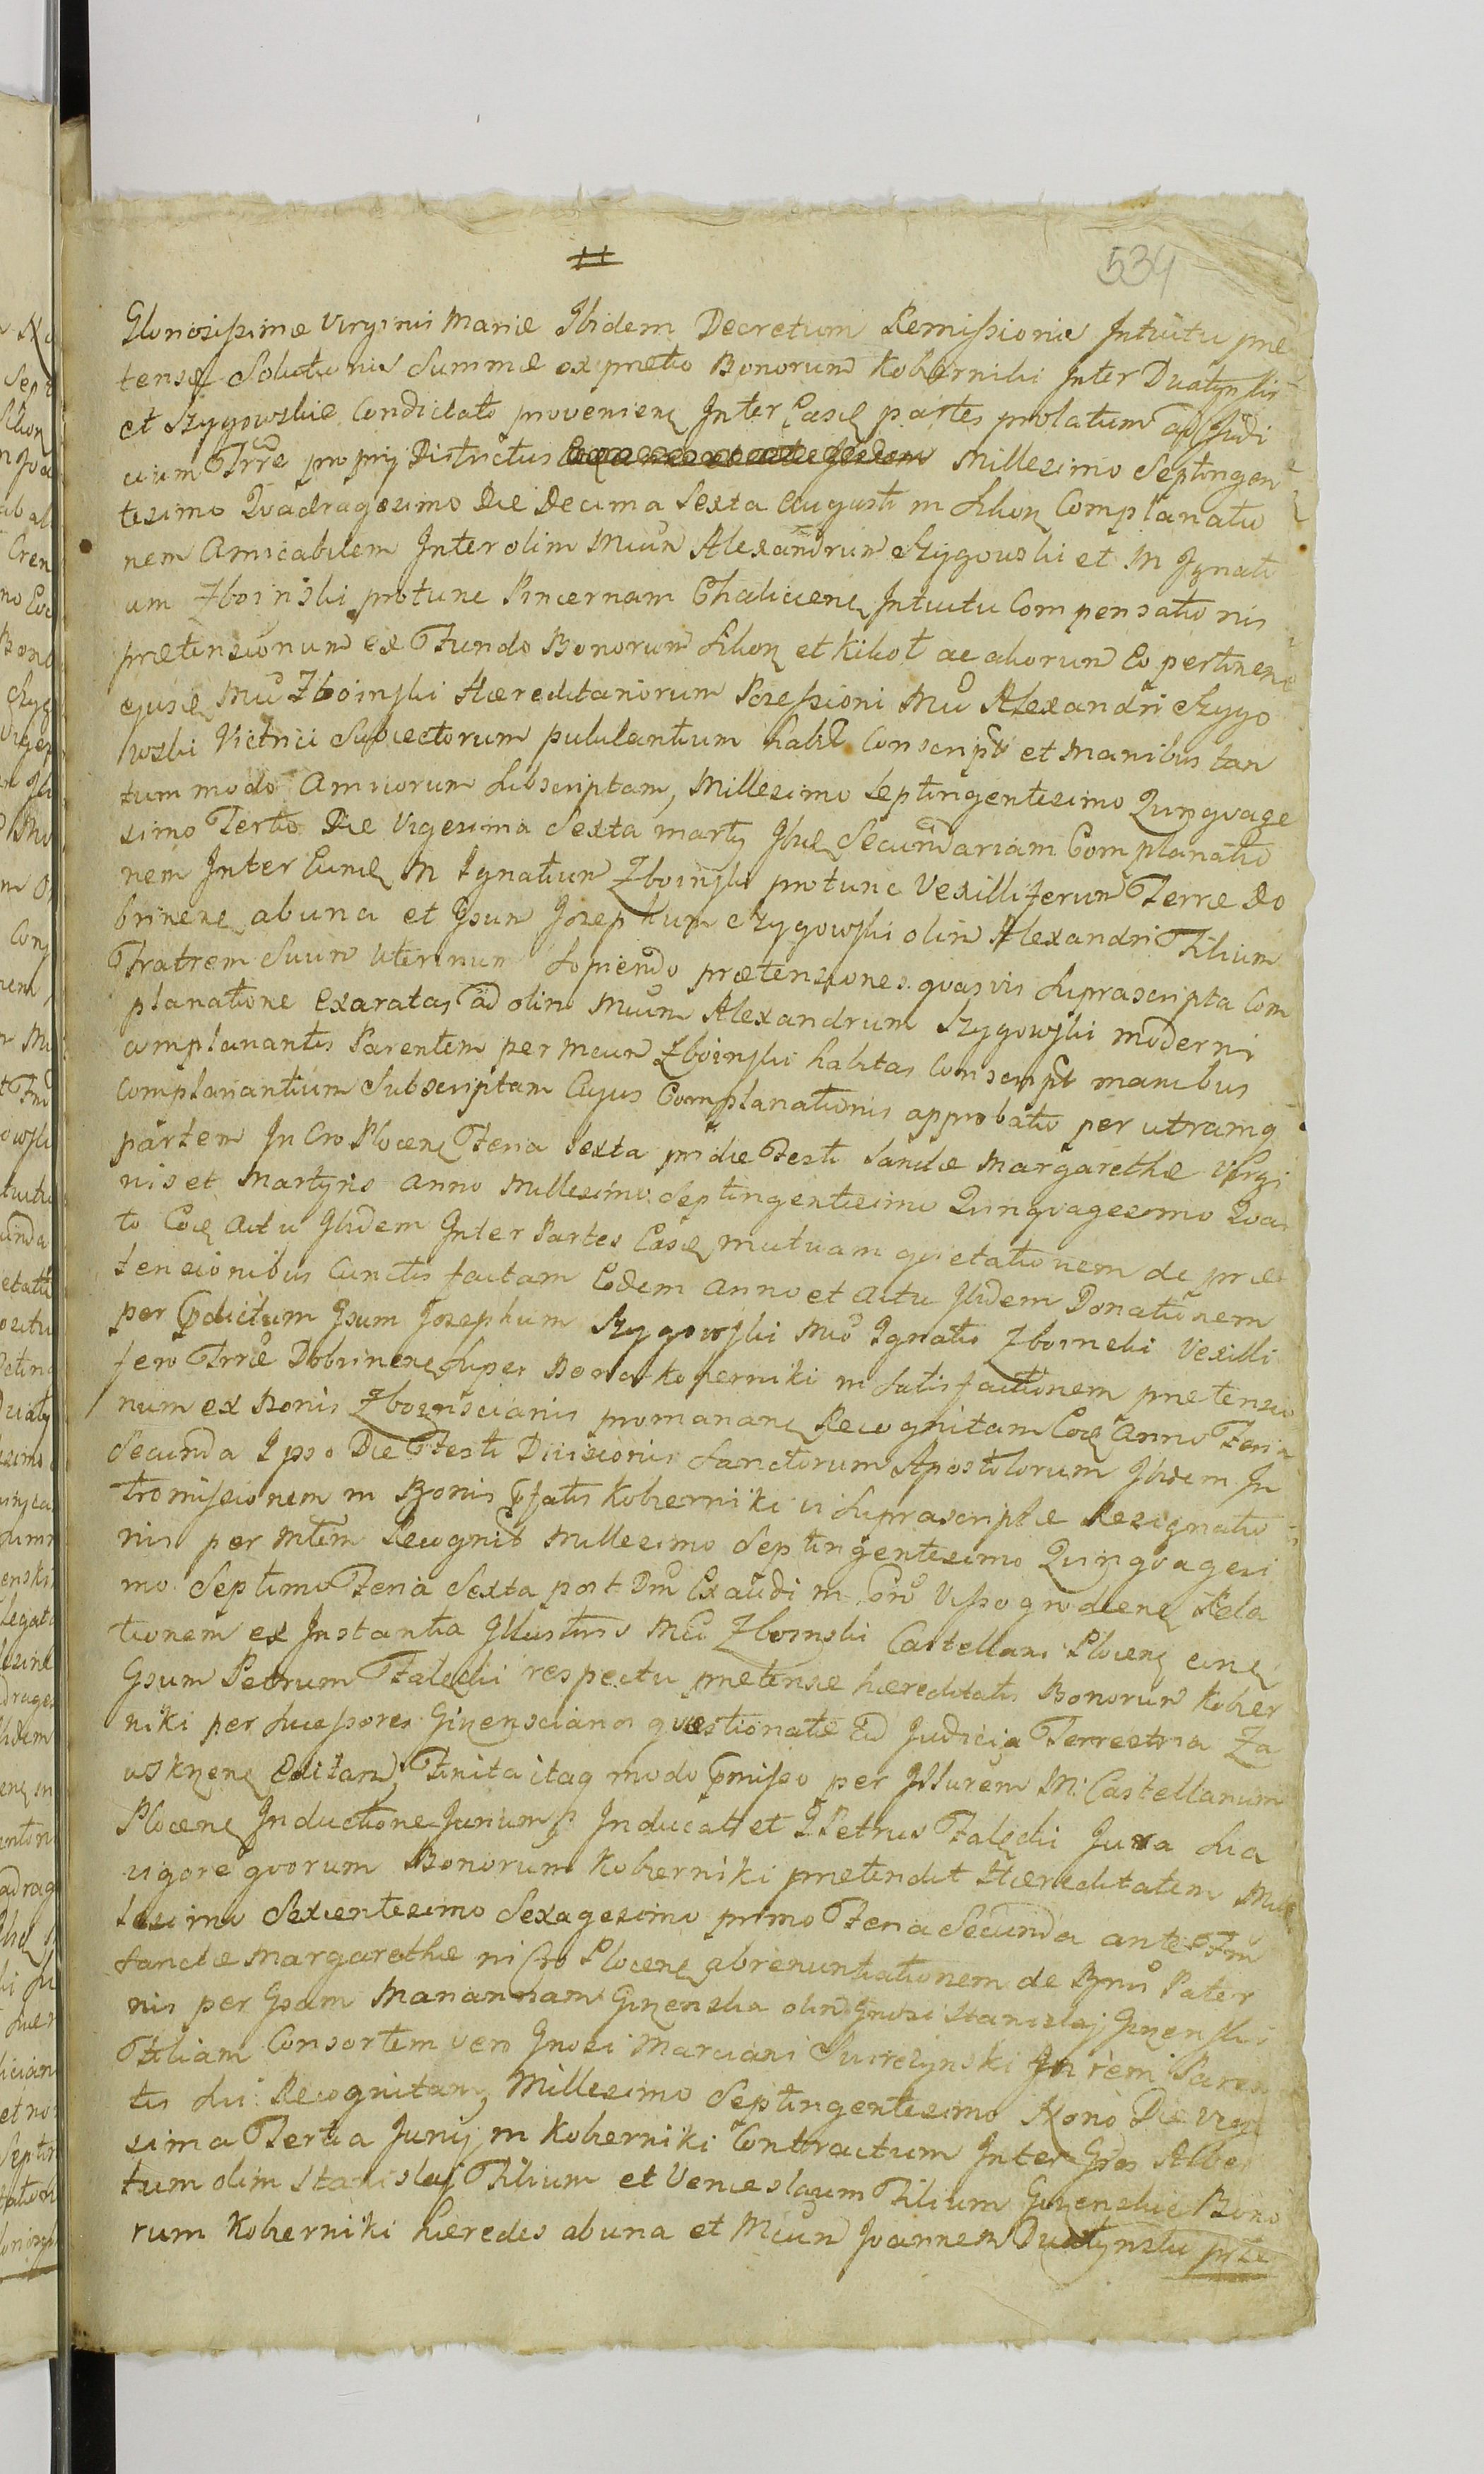 534
Gloriosissimæ Virginis Mariæ Ibidem Decretum Remissionis Intuitu præ
tensæ Solutionis Summæ ex pretio Bonorum Koberniki Inter Duatynski
et Szygowskie Condictato provenienͨ Inter Easdͤ partes prolatum ad Judi
cium Trræ proprij Districtus Millesimo Septingen
tesimo Quadragesimo Die Decima Sexta Augusti in Lihon Complanatio
nem Amicabilem Inter olim Mcum Alexandrum Szygowski et M Ignati
um Zboinski protunc Pincernam Chaliciensͤ Intuitu Compensationis
prætensionum ex Fundo Bonorum Lihon et Kikoł ac aliorum Eo pertinen
ejusdͤ Mci Zboinski Hæreditariorum Possessioni Mci Alexandri Szygo
wski Vietrici Subiectorum pululantium habit Conscript et Manibus tan
tum modo Amicorum Subscriptam, Millesimo Septingentesimo Quinqvage
simo Tertio Die Vigesima Sexta Martij Ibidͤ Secundariam Complanatio
nem Inter Eundͤ M Ignatium Zboinski protunc Vexilliferum Terræ Do
brinensͤ abuna et Gsum Josephum Szygowski olim Alexandri Filium
Fratrem Suum Uterinum Sopiendo prætensiones quasvis Suprascripta Com
planatione Exaratas ad olim Mcum Alexandrum Szygowski moderni
Complanantis Parentem per Mcum Zboinski habitas Conscript manibus
Complanantium Subscriptam Cujus Complanationis approbatio per utramq
partem In Cro Plocensͤ Feria Sexta pridie Festi Sanctæ Margarethæ Virgi
nis et Martyris Anno Millesimo Septingentesimo Quinqvagesimo Quar
to Eodͤ Actu Ibidem Inter Partes Easdͤ mutuam quietationem de præ
tensionibus Cunctis factam Eodem Anno et Actu Ibidem Donationem
per pdictum Gsum Josephum Szygowski Mco Ignatio Zboinski Vexilli
fero Trræ Dobrinensͤ Super Bona Koberniki in Satisfactionem prætensio
num ex Bonis Zboinscianis promananͨ Recognitam Eodͤ Anno Feria
Secunda Ipso Die Festi Divisionis Sanctorum Apostolorum Ibidem In
tromissionem in Bonis pfatis Koberniki vi Suprascriptæ Resignatio
nis per Mtem Recognit Millesimo Septingentesimo Quinqvagesi
mo Septimo Feria Sexta post Dm Exaudi in Cro Vissogrodiensͤ Rela
tionem ex Instantia Illustris Mci Zboinski Castellani Plocensͤ
Gsum Petrum Falęcki respectu prætensæ hæreditatis Bonorum Kober
niki per Sucessores Giżenscianos quæstionatæ Ad Judicia Terrestria Za
wskrzensͤ Editam, Finita itaq modo pmisso per Illurem M. Castellanum
Plocensͤ Inductione Jurium Inducat et G Petrus Falęcki Jura Sua
vigore quorum Bonorum Koberniki prætendit Hæreditatem Mil
lesimo Sexcentesimo Sexagesimo primo Feria Secunda ante Fm
Sanctæ Margarethæ in Cro Plocensͤ abrenuntiationem de Bonis Pater
nis per Gsam Mariannam Giżenska olim Gnosi Stanislaj Giżenski
Filiam Consortem vero Gnosi Marciani Swieżynski In rem Paren
tis Sui Recognitam, Millesimo Septingentesimo Nono Die Vige
sima Tertia Junij in Koberniki Contractum Inter Gsos Alber
tum olim Stanislaj Filium et Venceslaum Filium Giżenskie Bono
rum Koberniki hæredes abuna et Mcum Joannem Duatynski præ